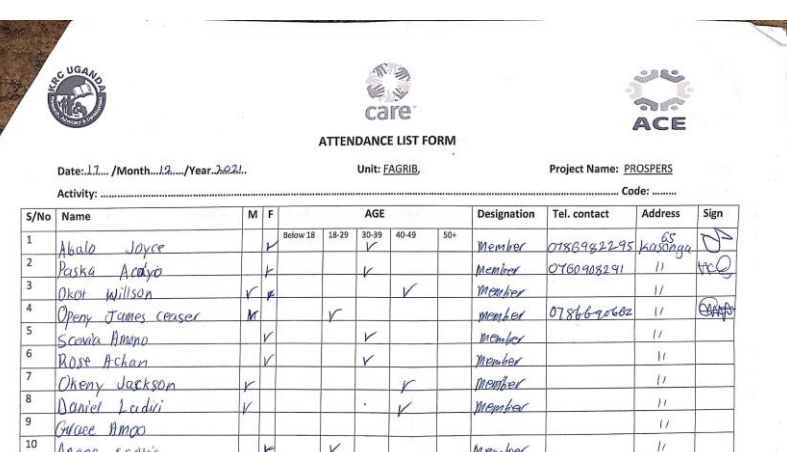 KRC UGANDA
care
ACE
ATTENDANCE LIST FORM
Date: 17 /Month 12 /Year 2021 Unit: FAGRIB, Project Name: PROSPERS
Activity: Code:
S/No Name M F AGE Designation Tel. contact Address Sign
Below 18 18-29 30-39 40-49 50+
1 Abalo Joyce ✓ ✓ Member 0786982295 65 Kasonga
2 Paska ✓ ✓ Member 0760908291 11
3 Okot Willson ✓ ✓ member 11
4 Openy James Ceaser M ✓ member 11
5 Scovia Amono ✓ ✓ member 11
6 Rose Achan ✓ ✓ Member 11
7 Okeny Jackson ✓ ✓ Member 11
8 Daniel ✓ ✓ Member 11
9 Grace 11
10 ✓ ✓ Member 11